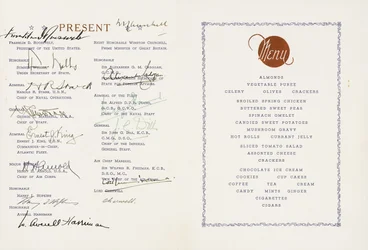 PRESENT
FRANKLIN D. ROOSEVELT,
PRESIDENT OF THE UNITED STATES.
HONORABLE
UNDER SECRETARY OF STATE.
ADMIRAL
HAROLD R. STARK, U.S.N.,
CHIEF OF NAVAL OPERATIONS.
GENERAL
ADMIRAL
ERNEST J. KING, U.S.N.,
COMMANDER-IN-CHIEF,
ATLANTIC FLEET.
MAJOR
CHIEF OF AIR CORPS
HONORABLE
HARRY L. HOPKINS
HONORABLE
AVERELL HARRIMAN
W. Averell Harriman
RIGHT HONORABLE WINSTON CHURCHILL,
PRIME MINISTER OF GREAT BRITAIN.
HONORABLE
SIR ALEXANDER G. M. CADOGAN,
STATE FOR FOREIGN AFFAIRS
ADMIRAL OF THE FLEET
SIR ALFRED D.P.R. POUND,
CHIEF OF THE NAVAL STAFF
GENERAL
SIR JOHN G. DILL, K.C.B.,
C.M.G., D.S.O.,
CHIEF OF THE IMPERIAL
GENERAL STAFF.
AIR CHIEF MARSHAL
SIR WILFRID R. FREEMAN, K.C.B.,
D.S.O., M.C.,
LORD CHERWELL
Cherwell
Menu
ALMONDS
VEGETABLE PUREE
CELERY OLIVES CRACKERS
BROILED SPRING CHICKEN
BUTTERED SWEET PEAS
SPINACH OMELET
CANDIED SWEET POTATOES
MUSHROOM GRAVY
HOT ROLLS CURRANT JELLY
SLICED TOMATO SALAD
ASSORTED CHEESE
CRACKERS
CHOCOLATE ICE CREAM
COOKIES CUP CAKES
COFFEE TEA CREAM
CANDY MINTS GINGER
CIGARETTES
CIGARS